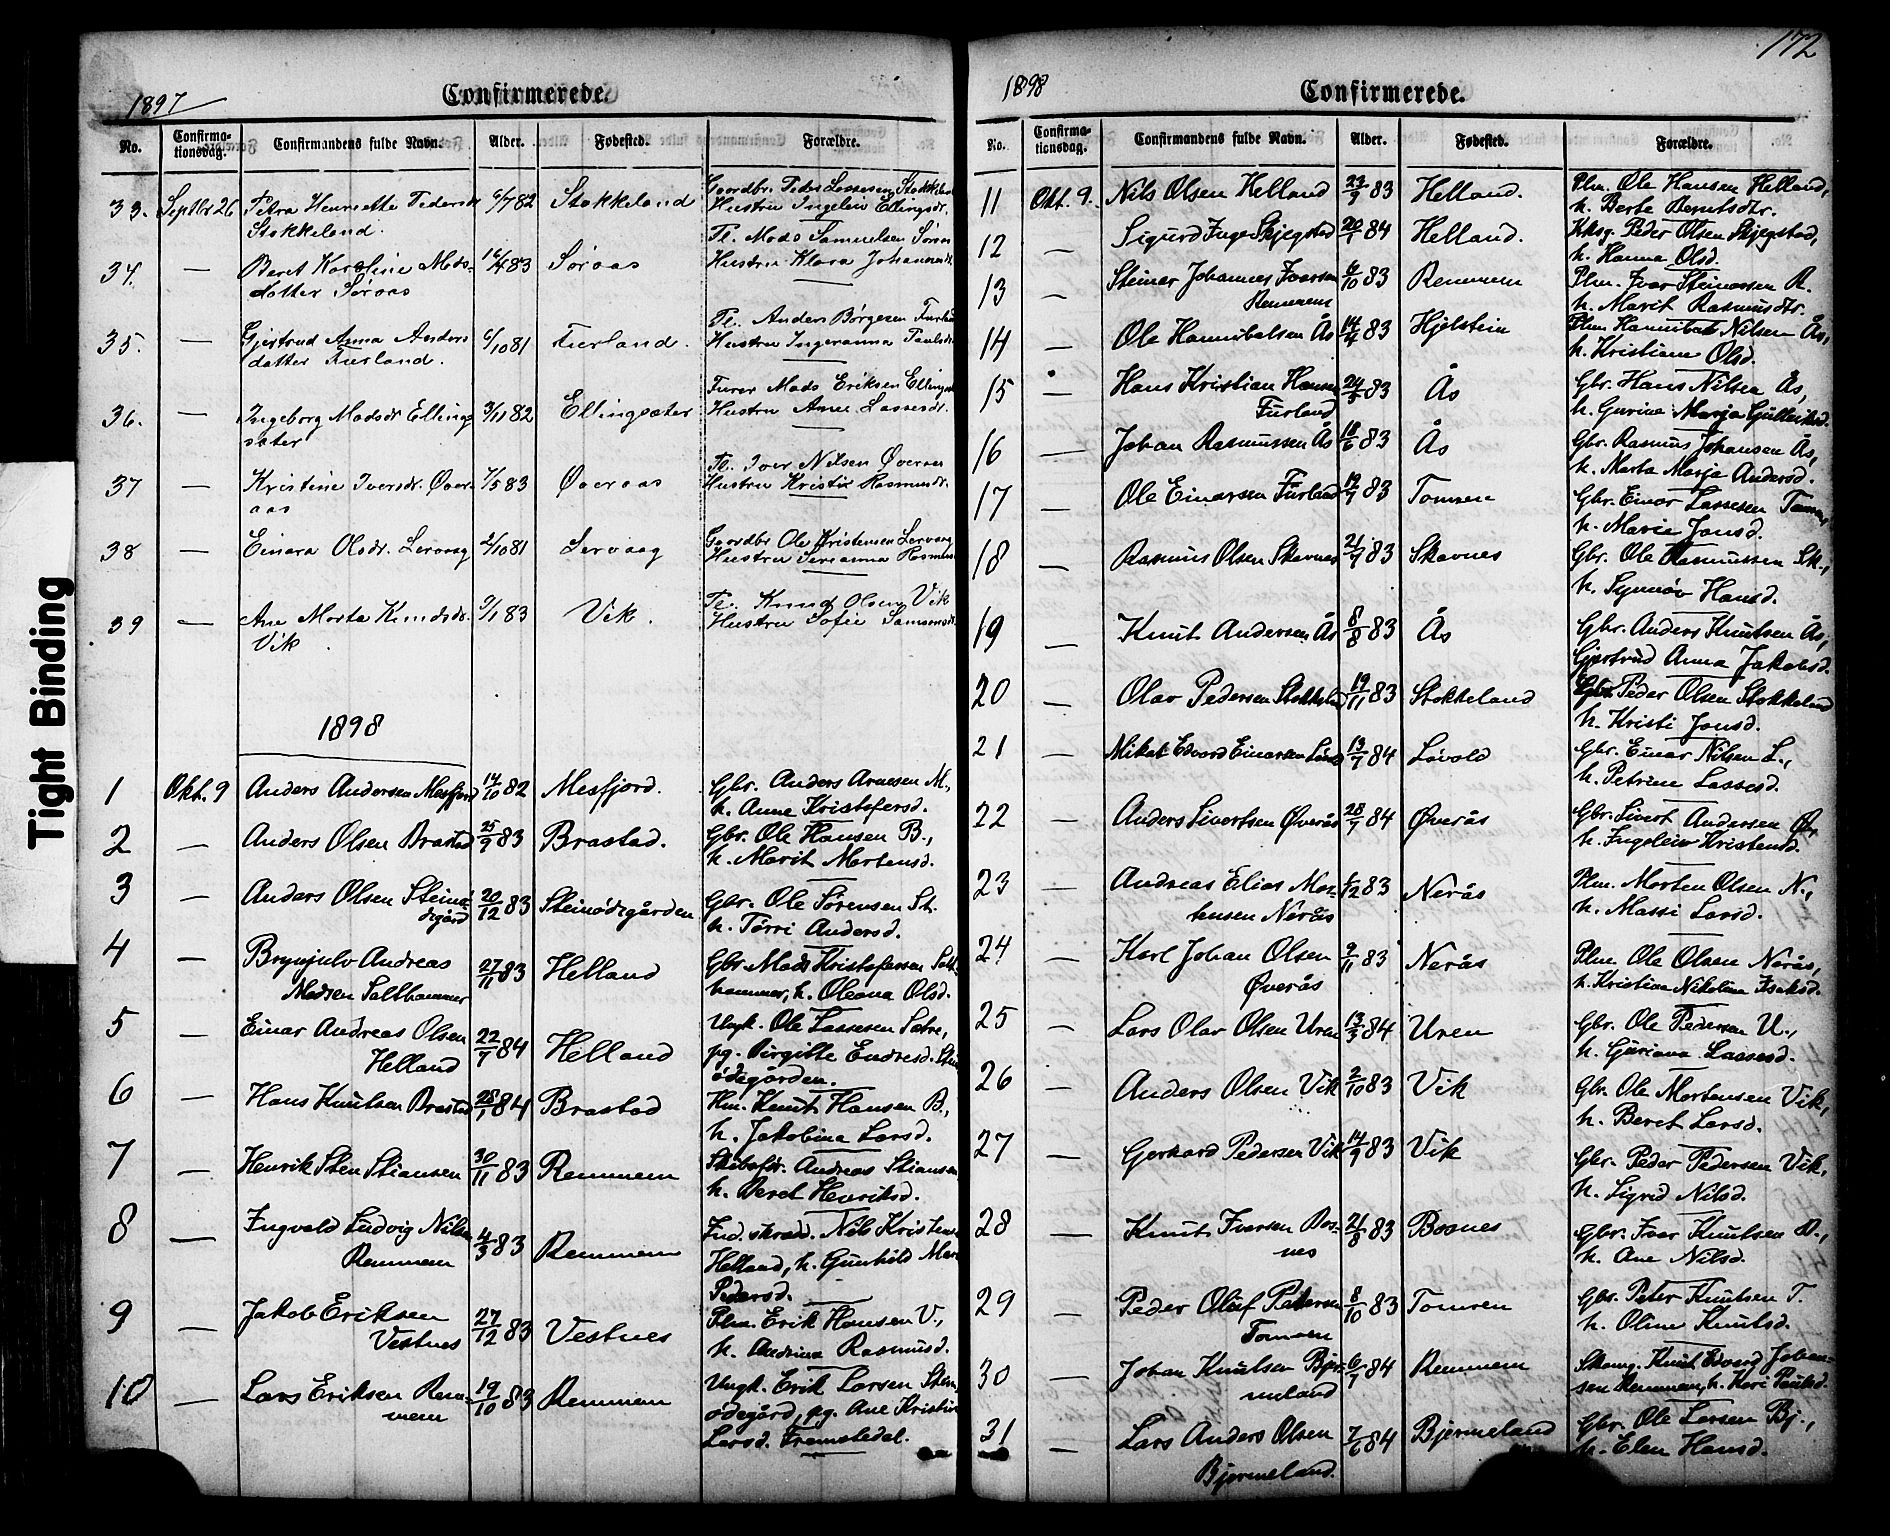 172
1897
Confirmerede.
No. Confirma-tionsdag. Confirmandens fulde Navn. Alder. Fødested. Forældre.
33. Septbr 26 Petra Henriette Pedersdr 6/7 82 Stokkeland Gaardbr. Peder Lassesen Stokkeland
Stokkeland. Hustru Ingeleiv Ellingsdr.
34. — Beret Karoline Mads- 16/4 83 Søraas Pl. Mads Samuelsen
datter Søraas Hustru Klara Johannesdr
35. — Gjertrud Anna Anders 6/10 81 Furland. Pl. Anders Børgesen Furland
datter Furland. Hustru Ingeranna Paulsdr
36. — Ingeborg Madsdr. Ellings 3/11 82 Ellingsæter Furer Mads Eriksen
sæter Hustru Anne Lassesdr.
37 — Kristine Iversdr. Øver- 7/5 83 Øveraas Pl. Iver Nilsen Øveraas
aas Hustru Kristi Rasmusdr.
38 — Einara Olsdr. Lervaag 2/10 81 Lervaag Gaardbr Ole Kristensen Lervaag
Hustru Serianna
39 — Ane Marta Knudsdr. 3/1 83 Vik. Pl. Knud Olsen Vik
Vik. Hustru Sofie Samsonsdr.
1898
1 Okt. 9 Anders Andersen Mesfjord 14/10 82 Mesfjord. Gbr. Anders Arnesen M.,
h. Anne Kristofersd.
2 — Anders Olsen Brastad 25/9 83 Brastad. Gbr. Ole Hansen B.,
h. Marit Martensd.
3 — Anders Olsen Steinø- 20/12 83 Steinødegården Gbr. Ole Sørensen St.
degård h. Tørri Andersd.
4 — Brynjulv Andreas 27/11 83 Helland Gbr. Mads Kristofersen Salt-
Madsen Salthammer hammer, h. Oleana Olsd.
5 — Einar Andreas Olsen 22/7 84 Helland Ungk. Ole Lassesen Sætre,
Helland pg. Birgitte Endresd.
ødegården.
6 — Hans Knutsen Brastad 28/1 84 Brastad Km. Knut Hansen B.,
h. Jakobina Larsd.
7 — Henrik Sten Stiansen 30/11 83 Remmem Skibsfør. Andreas Stiansen
h. Beret Henriksd.
8 — Ingvald Ludvig Nilsen 4/3 83 Remmem Ind. skræd. Nils Kristensen
Remmem Helland, h. Gunhild
Pedersd.
9 — Jakob Eriksen 27/12 83 Vestnes Plm. Erik Hansen V.,
Vestnes h. Andrina Rasmusd.
10 — Lars Eriksen Rem- 19/10 83 Remmem Ungk. Erik Larsen
mem ødegård, pg. Ane Kristine
Larsd. Fremstedal.
1898
Confirmerede.
No. Confirma-tionsdag. Confirmandens fulde Navn. Alder. Fødested. Forældre.
11 Okt. 9. Nils Olsen Helland 23/9 83 Helland. Plm. Ole Hansen Helland,
h. Berte Berntsdtr.
12 — Sigurd Inge Skjegstad 20/1 84 Helland. Kksg. Peder Olsen Skjegstad,
h. Hanna Olsd.
13 — Steinar Johannes Ivarsen 6/10 83 Remmem Plm. Ivar Steinarsen R.
Remmem h. Marit Rasmusdtr.
14 — Ole Hannibalsen Ås 14/4 83 Hjelstein Plm. Hannibal Nilsen Ås,
h. Kristiane Olsd.
15 — Hans Kristian Hansen 24/8 83 Ås Gbr. Hans Nilsen Ås,
Furland h. Gurine Marja
16 — Johan Rasmussen Ås 18/6 83 Ås Gbr. Rasmus Johansen Ås,
h. Marta Marja Andersd.
17 — Ole Einarsen Furland 12/9 83 Tomren Gbr. Einar Lassesen
h. Marie Jonsd.
18 — Rasmus Olsen Skavnes 21/7 83 Skavnes Gbr. Ole Rasmussen Sk.,
h. Synnøv Hansd.
19 — Knut Andersen Ås 8/8 83 Ås Gbr. Anders Knutsen Ås,
Gjertrud Anna Jakobsd.
20 — Olav Pedersen Stokkeland 19/11 83 Stokkeland Gbr Peder Olsen Stokkeland
h. Kristi Jonsd.
21 — Mikal Edvard Einarsen Løvold 13/7 84 Løvold Gbr. Einar Nilsen L.,
h. Petrine Lassesd.
22 — Anders Sivertsen Øverås 28/7 84 Øverås Gbr. Sivert Andersen Ø.,
h. Ingeleiv Kristensd.
23 — Andreas Elias Mor- 1/12 83 Nerås Plm. Morten Olsen N.,
tensen Nerås h. Massi Larsd.
24 — Karl Johan Olsen 2/11 83 Nerås Plm. Ole Olsen Nerås,
Øverås h. Kristine Nikoline Isaksd.
25 — Lars Olav Olsen Uren 13/3 84 Uren Gbr. Ole Pedersen U.,
h. Guriana Lassesd.
26 — Anders Olsen Vik 2/10 83 Vik Gbr. Ole Mortensen Vik,
h. Beret Larsd.
27 — Gerhard Pedersen Vik 14/9 83 Vik Gbr. Peder Pedersen Vik,
h. Sigrid Nilsd.
28 — Knut Ivarsen Bos- 21/8 83 Bosnes Gbr. Ivar Knutsen B.,
nes h. Ane Nilsd.
29 — Peder Oluf Petersen 8/10 83 Tomren Gbr. Peter Knutsen T.
Tomren h. Oline Knutsd.
30 — Johan Knutsen Bjør- 6/7 84 Remmem Skomg. Knut Edvard Johan-
neland sen Remmem, h. Kari Paulsd.
31 — Lars Anders Olsen 7/6 84 Bjermeland Gbr. Ole Larsen Bj.,
Bjermeland. h. Elen Hansd.
Tight Binding